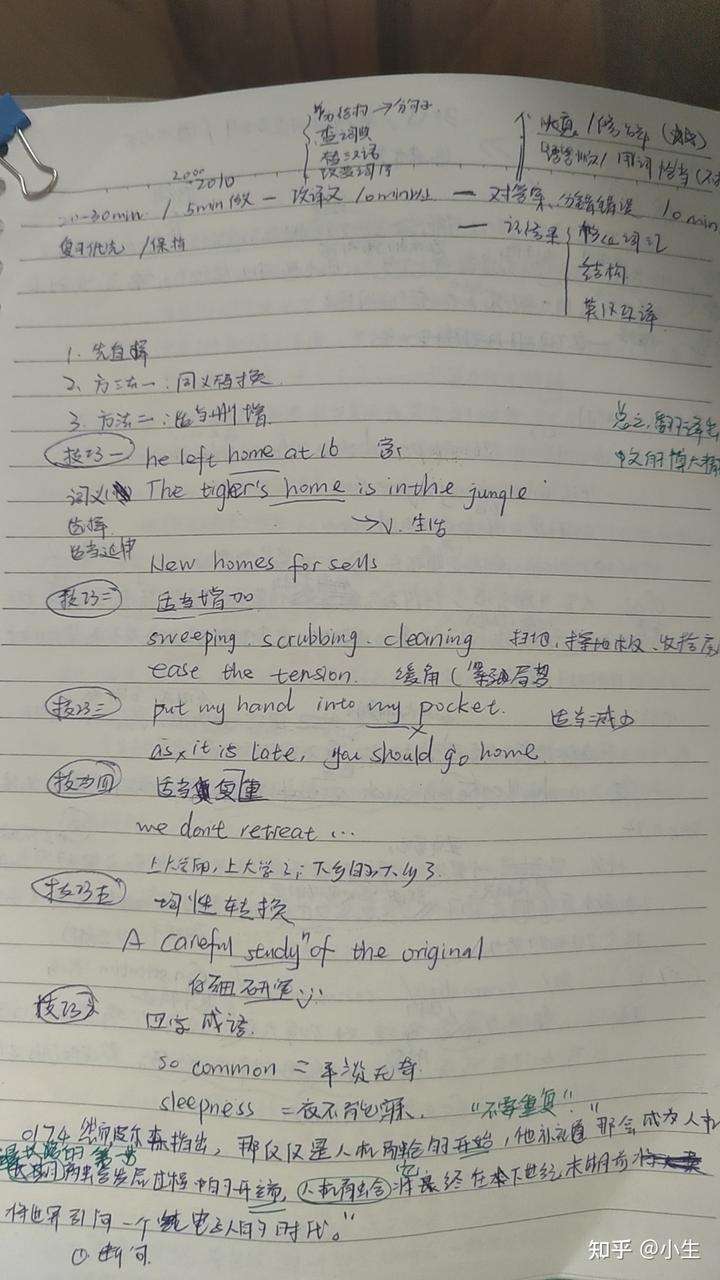 划分结构 → 分句子
查词典
2000-2010
20-30min / 5min 修改 — 改译文 10min以上 — 对答案、分错错误 10min
复习优先 /保持
— 记结果
核心词汇
结构
英汉环译
1. 先直译
2. 方法一:同义替换
3. 方法二:适当删增
总之,翻译出
中文的博大精
技巧一 he left home at 16 家
词义 The tigler's home is in the jungle
选择 → v. 生活
适当延伸
New homes for sells
技巧二 适当增加
sweeping. scrubbing. cleaning 扫地,擦地板、收拾房
ease the tension. 缓解(紧张局势
技巧三 put my hand into my pocket. 适当减少
as it is late, you should go home.
技巧四 适当重复
we don't retreat ...
技巧五 词性转换
A careful study n of the original
仔细研究
技巧六 四字成语
so common = 平淡无奇
sleepness = 夜不能寐. "不要重复"
0174 然而皮尔森指出,那仅仅是人机融合的开始,他补充道"那会成为人机
融合发展过程中的开端,人机融合它将最终在本下世纪末期前
将世界引向一个纯电子人的时代。"
① 断句
知乎 @小生